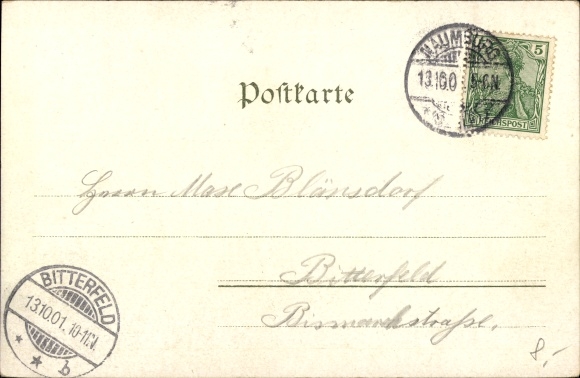 NAUMBURG
13.10.0 5-6.N.
5
REICHSPOST
Postkarte
Herrn Max Blänsdorf
Bitterfeld
Bismarckstraße.
BITTERFELD
13.10.01.10-11N.
* * b
8,-